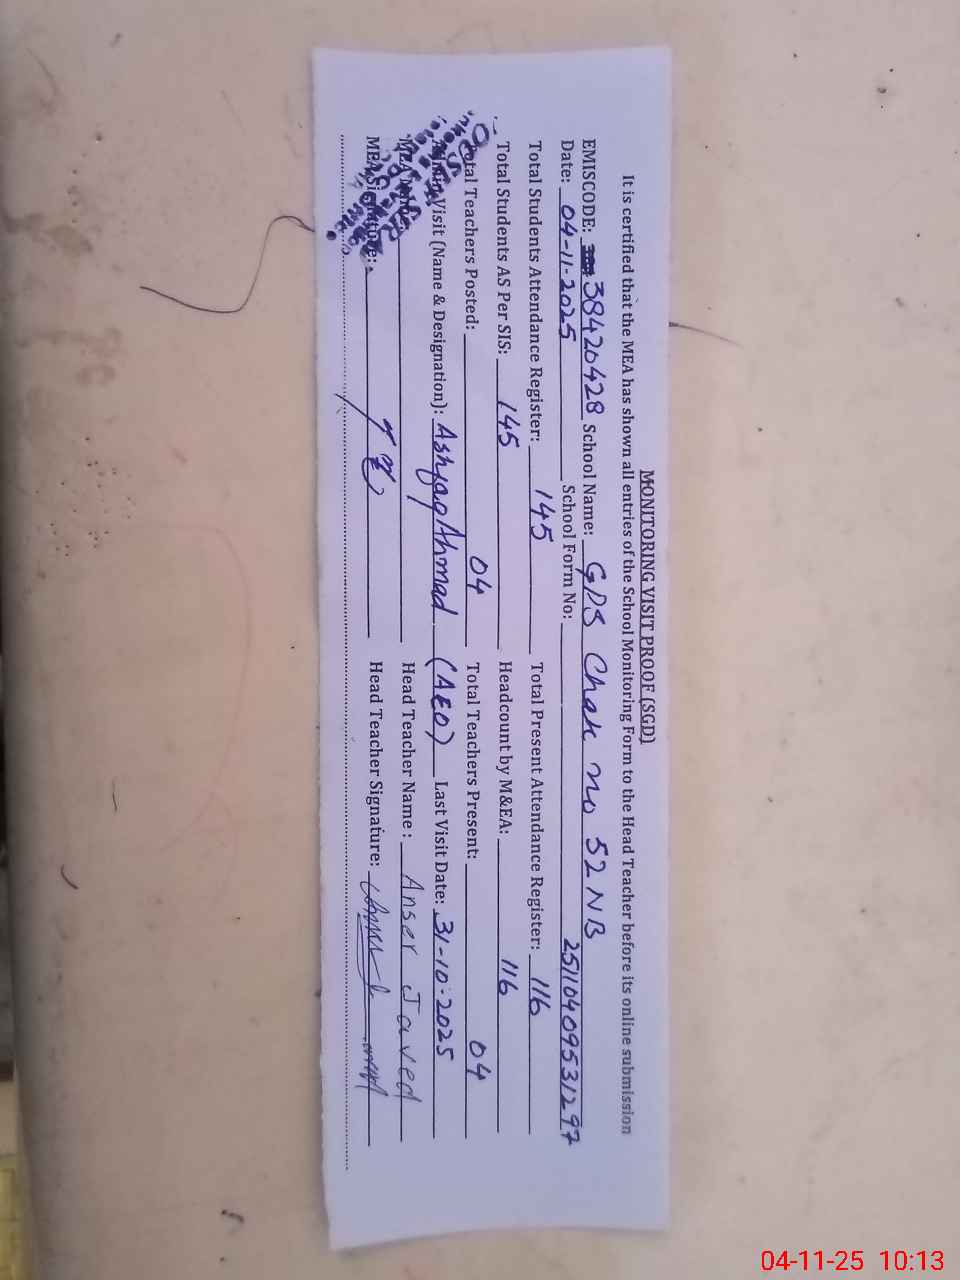 MONITORING VISIT PROOF (SGD)
It is certified that the MEA has shown all entries of the School Monitoring Form to the Head Teacher before its online submission
EMISCODE: 38420428 School Name: GPS Chak no 52 NB
Date: 04-11-2025 School Form No: 25110409531297
Total Students Attendance Register: 145 Total Present Attendance Register: 116
Total Students AS Per SIS: 145 Headcount by M&EA: 116
Total Teachers Posted: 04 Total Teachers Present: 04
Visit (Name & Designation): Ashfaq Ahmad (AEO) Last Visit Date: 31-10-2025
MEA Head Teacher Name : Anser Javed
MEA Signature: Head Teacher Signature:
04-11-25 10:13